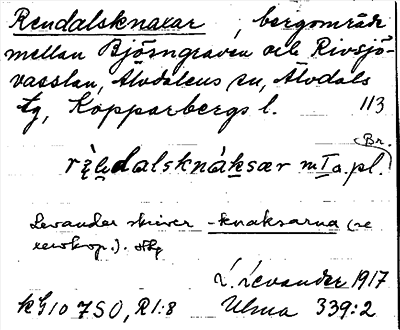 Rendalsknaxar, bergområde
mellan Björngraven och Rivsjö-
vasslan, Älvdalens sn, Älvdals
tg, Kopparbergs l. 113
Br.
dalsknáksær m I a. pl.
Levander skriver -knaksarna (se
xeroxkop.).
L. Levander 1917
kG10 7SO, R1:8 Ulma 339:2